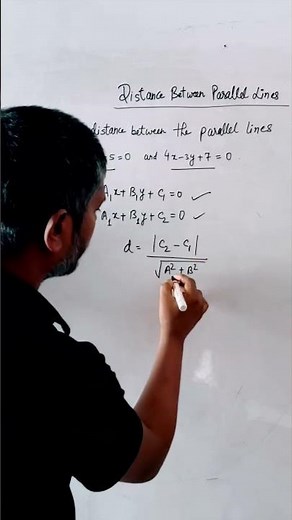 Distance Between Parallel Lines
distance between the parallel lines
5=0 and 4x-3y+7=0.
A₁x+B₁y+C₁=0 ✓
A₁x+B₁y+C₂=0 ✓
d = |C₂-C₁| / √(A²+B²)